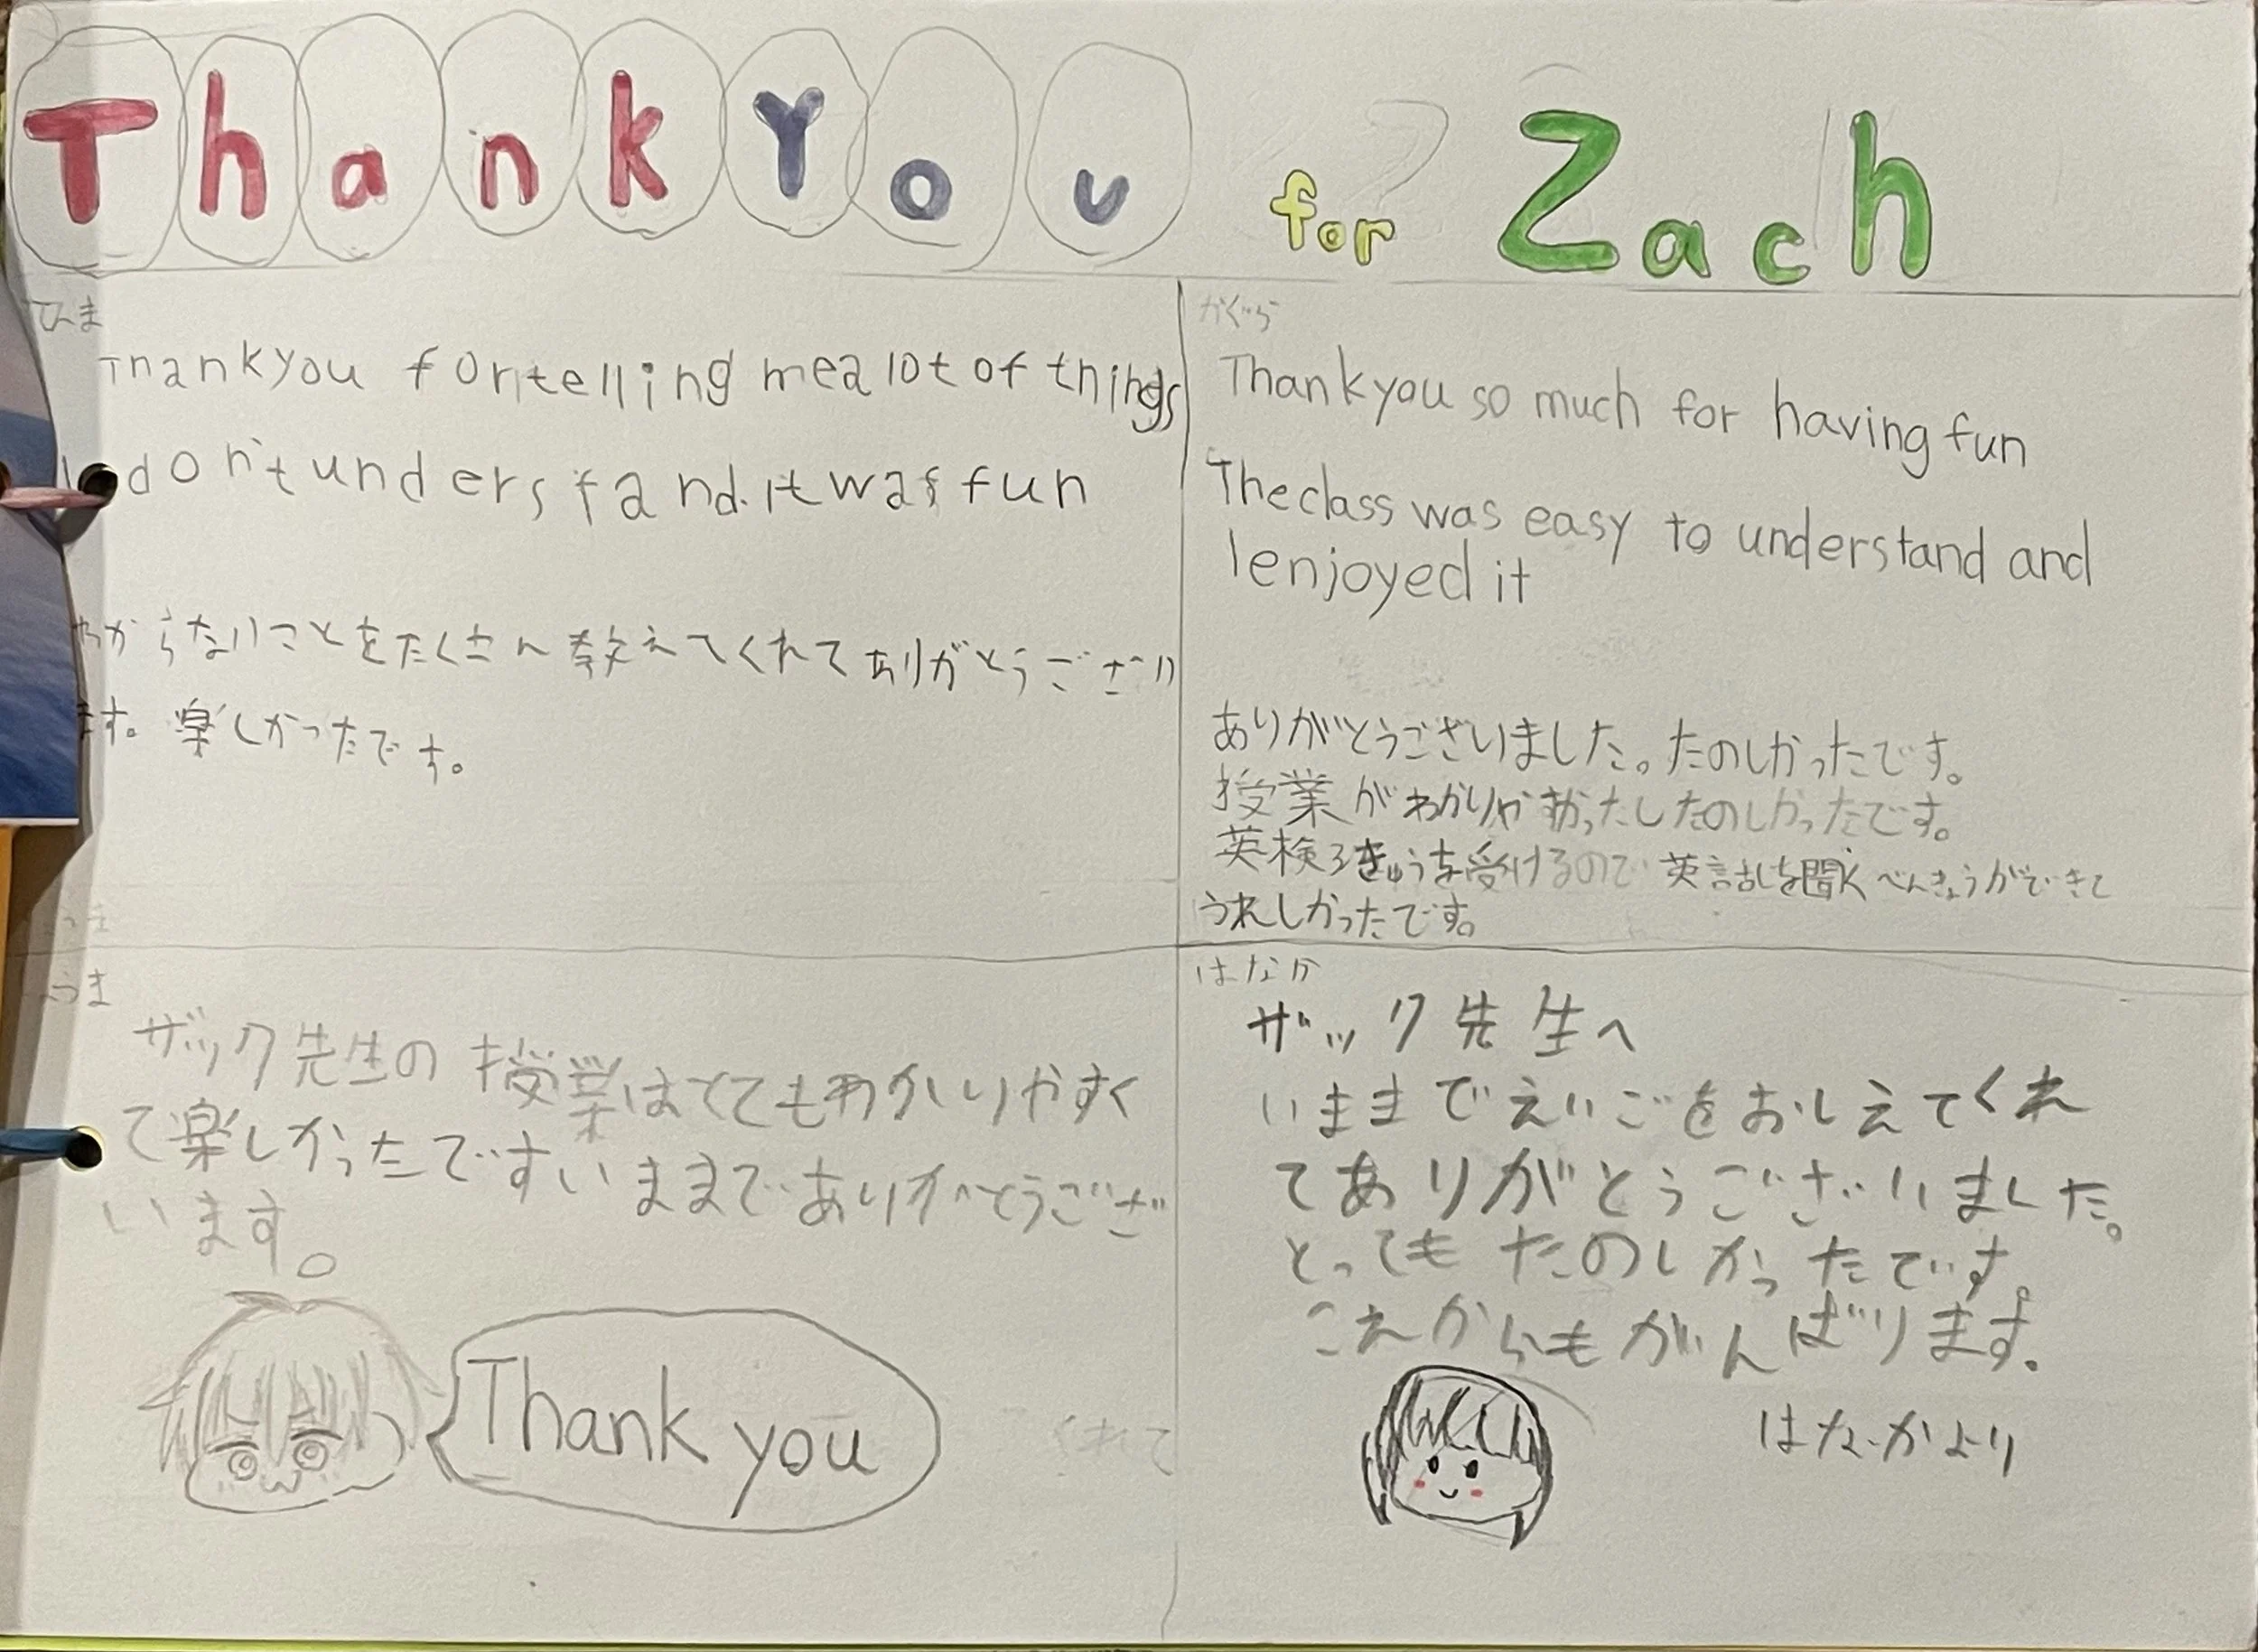 Thank You for Zach
ひま
Thankyou for telling me a lot of things
I don't understand. It was fun
わからないことをたくさん教えてくれてありがとうござい
ます。楽しかったです。
かぐら
Thank you so much for having fun
The class was easy to understand and
I enjoyed it
ありがとうございました。たのしかったです。
授業がわかりやすかったしたのしかったです。
英検3きゅうを受けるので英語を聞くべんきょうができて
うれしかったです。
うま
ザック先生の授業はとてもわかいりやすく
て楽しかったですいままでありがとうござ
います。
Thank you
くれて
はなか
ザック先生へ
いままでえいごをおしえてくれ
てありがとうございました。
とってもたのしかったです。
これからもがんばります。
はなかより